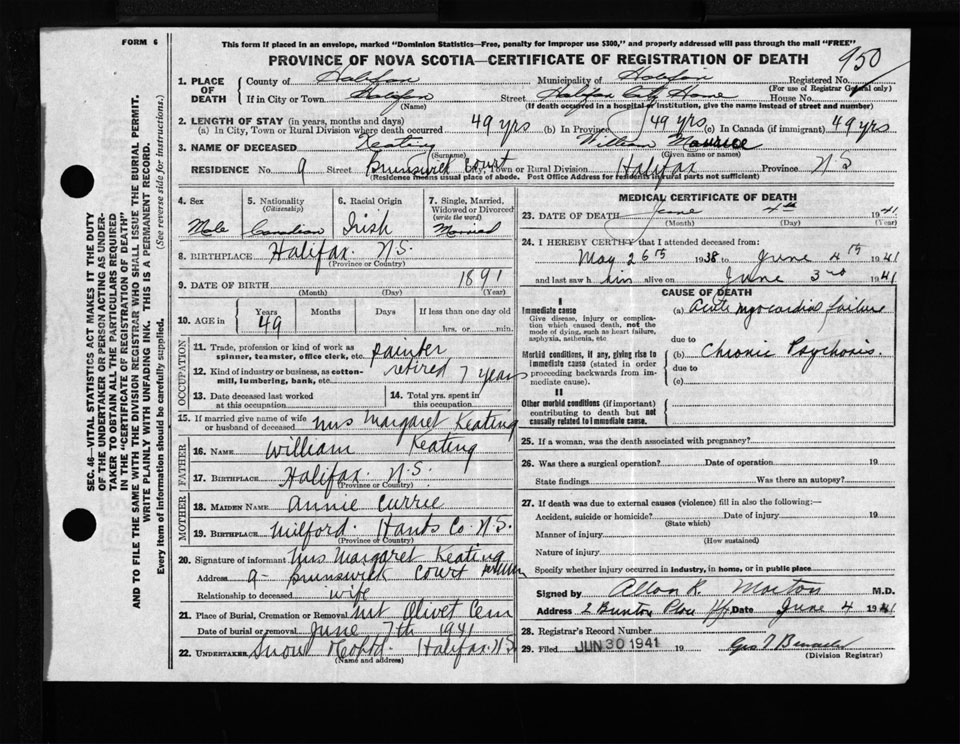 FORM 6
This form if placed in an envelope, marked "Dominion Statistics—Free, penalty for improper use $300," and properly addressed will pass through the mail "FREE"
PROVINCE OF NOVA SCOTIA—CERTIFICATE OF REGISTRATION OF DEATH
950
1. PLACE OF DEATH
County of Halifax Municipality of Halifax Registered No.
(For use of Registrar General only)
If in City or Town Halifax Street Halifax City Home House No.
(Name) (If death occurred in a hospital or institution, give the name instead of street and number)
2. LENGTH OF STAY (in years, months and days)
(a) In City, Town or Rural Division where death occurred 49 yrs (b) In Province 49 yrs (c) In Canada (if immigrant) 49 yrs
3. NAME OF DECEASED Keating William Maurice
(Surname) (Given name or names)
RESIDENCE No. 9 Street Brunswick Court City, Town or Rural Division Halifax Province N.S
(Residence means usual place of abode. Post Office Address for residents in rural parts not sufficient)
4. Sex
Male
5. Nationality
(Citizenship)
Canadian
6. Racial Origin
Irish
7. Single, Married, Widowed or Divorced
(write the word)
Married
8. BIRTHPLACE Halifax N.S.
(Province or Country)
9. DATE OF BIRTH 1891
(Month) (Day) (Year)
10. AGE IN
Years Months Days If less than one day old
49 hrs. or min.
OCCUPATION
11. Trade, profession or kind of work as spinner, teamster, office clerk, etc. painter
12. Kind of industry or business, as cotton-mill, lumbering, bank, etc. retired 7 years
13. Date deceased last worked at this occupation
14. Total yrs. spent in this occupation
15. If married give name of wife or husband of deceased Mrs Margaret Keating
FATHER
16. NAME William Keating
17. BIRTHPLACE Halifax N.S.
(Province or Country)
MOTHER
18. MAIDEN NAME Annie Currie
19. BIRTHPLACE Milford. Hants Co. N.S.
(Province or Country)
20. Signature of informant Mrs Margaret Keating
Address 9- Brunswick Court
Relationship to deceased wife
21. Place of Burial, Cremation or Removal Mt Olivet Cem
Date of burial or removal June 7th 1941
22. UNDERTAKER Snow & Co Ltd. Halifax. N.S
(Name and address)
MEDICAL CERTIFICATE OF DEATH
23. DATE OF DEATH June 4th 1941
(Month) (Day) (Year)
24. I HEREBY CERTIFY that I attended deceased from:
May 26th 1938 to June 4th 1941
and last saw him alive on June 3rd 1941
CAUSE OF DEATH
I
Immediate cause
Give disease, injury or complication which caused death, not the mode of dying, such as heart failure, asphyxia, asthenia, etc
(a) Acute myocardial failure
due to
Morbid conditions, if any, giving rise to immediate cause (stated in order proceeding backwards from immediate cause).
(b) Chronic Psychosis.
due to
(c)
II
Other morbid conditions (if important) contributing to death but not causally related to immediate cause.
25. If a woman, was the death associated with pregnancy?
26. Was there a surgical operation? Date of operation 19
State findings Was there an autopsy?
27. If death was due to external causes (violence) fill in also the following:—
Accident, suicide or homicide? Date of injury 19
(State which)
Manner of injury
(How sustained)
Nature of injury
Specify whether injury occurred in industry, in home, or in public place
Signed by Allan R. Morton M.D.
Address Date June 4 1941
28. Registrar's Record Number
29. Filed JUN 30 1941 19
(Division Registrar)
SEC. 46—VITAL STATISTICS ACT MAKES IT THE DUTY
OF THE UNDERTAKER OR PERSON ACTING AS UNDER-
TAKER TO OBTAIN ALL THE PARTICULARS REQUIRED
IN THE "CERTIFICATE OF REGISTRATION OF DEATH"
AND TO FILE THE SAME WITH THE DIVISION REGISTRAR WHO SHALL ISSUE THE BURIAL PERMIT.
WRITE PLAINLY WITH UNFADING INK. THIS IS A PERMANENT RECORD.
Every item of information should be carefully supplied. (See reverse side for instructions.)